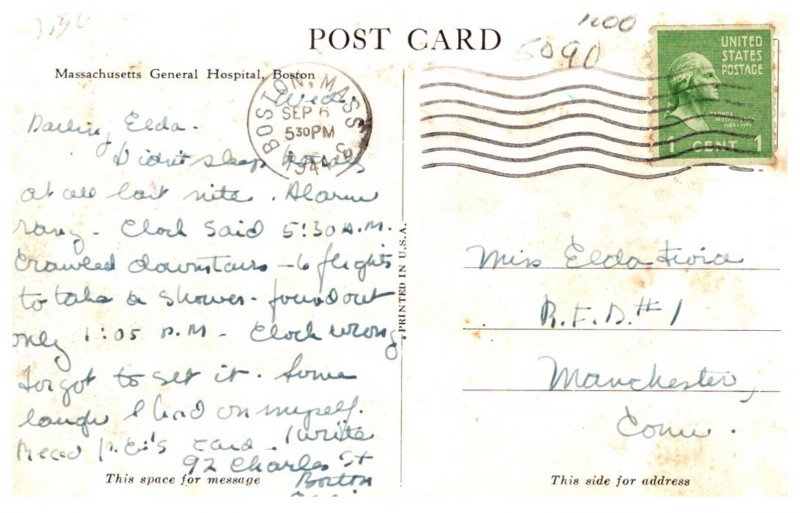 1.00
5090
POST CARD
Massachusetts General Hospital, Boston
BOSTON, MASS
SEP 6
5 30 PM
1944
UNITED
STATES
POSTAGE
1 CENT 1
Wed.
Darling Elda.
Didn't sleep
at all last nite. Alarm
rang. Clock said 5:30 A.M.
Crawled downstairs - 6 flights
to take a shower. found out
only 1:05 A.M. Clock wrong.
forgot to set it. Some
laugh I had on myself.
Read card. Write
92 Charles St
Boston
PRINTED IN U.S.A.
Miss Elda
R.F.D. #1
Manchester,
Conn.
This space for message
This side for address